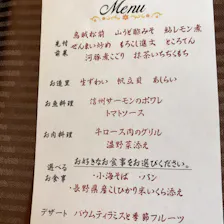 Menu
鳥賊松前 山うど酢みそ 鮎レモン煮
先付
前菜 ぜんまい炒め もろこし進丈 ところてん
河豚煮こごり 抹茶いちぢくもち
お造里 生ずわい 帆立貝 あしらい
お魚料理 信州サーモンのポワレ
トマトソース
お肉料理 牛ロース肉のグリル
温野菜添え
選べる お好きなお食事をお選びください。
お食事 ・小海そば ・パン
・長野県産こしひかり米いくら添え
デザート バウムティラミスと季節フルーツ